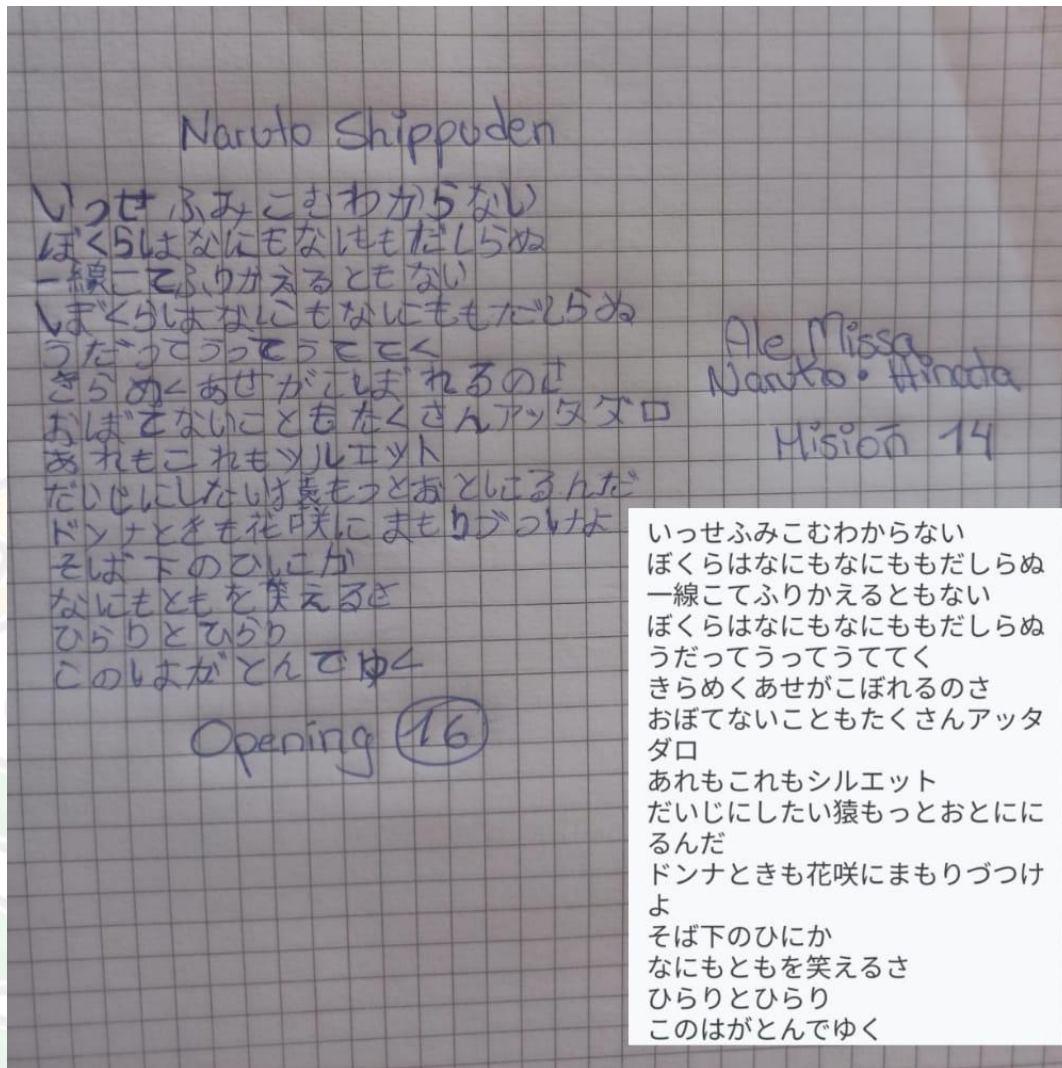 Naruto Shippuden
いっせふみこむわからない
ぼくらはなにもなにももだしらぬ
一線こてふりかえるともない
しぼくらはなにもなにももだしらぬ
うだってうってうててく
きらめくあせがこぼれるのさ
おぼてないこともたくさんアッタダロ
あれもこれもシルエット
だいじにしたいは猿もっとおとににるんだ
ドンナときも花咲にまもりづつけよ
そば下のひにか
なにもともを笑えるさ
ひらりとひらり
このはがとんでゆく
Opening 16
Ale Missa
Naruto • Hinata
Misión 14
いっせふみこむわからない
ぼくらはなにもなにももだしらぬ
一線こてふりかえるともない
ぼくらはなにもなにももだしらぬ
うだってうってうててく
きらめくあせがこぼれるのさ
おぼてないこともたくさんアッタ
ダロ
あれもこれもシルエット
だいじにしたい猿もっとおとにに
るんだ
ドンナときも花咲にまもりづつけ
よ
そば下のひにか
なにもともを笑えるさ
ひらりとひらり
このはがとんでゆく